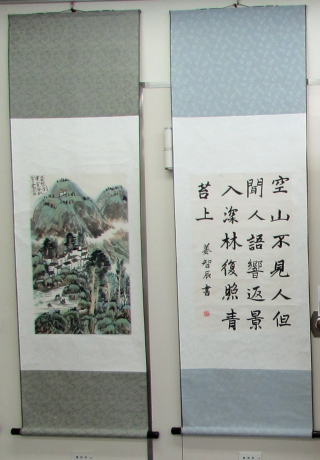 空山不見人但
聞人語響返景
入深林復照青
苔上
姜智辰書